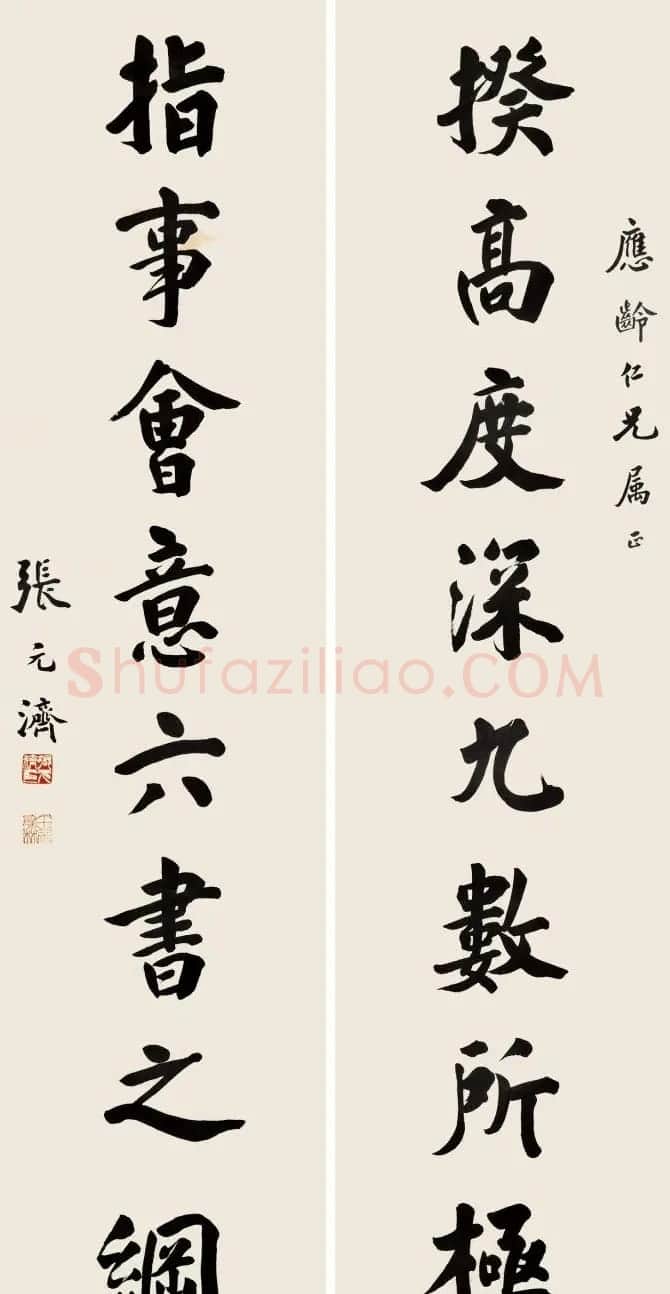 應齡仁兄属正
揆高度深九數所極
指事會意六書之綱
張元濟
Shufaziliao.COM